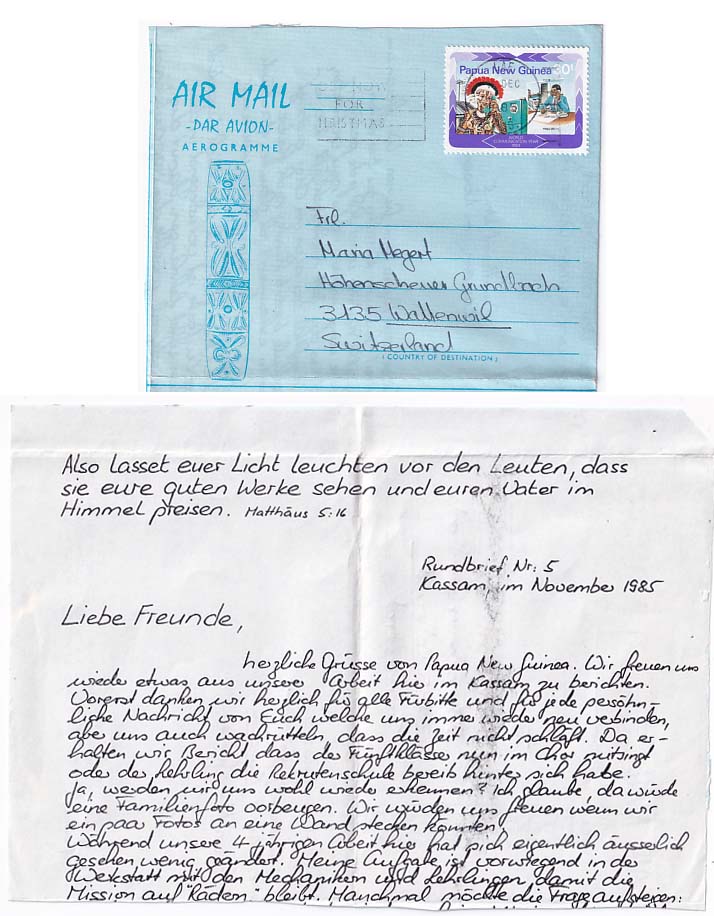 AIR MAIL
-PAR AVION-
AEROGRAMME
FOR
CHRISTMAS
LAE
DEC
Papua New Guinea
WORLD
COMMUNICATION YEAR
1983
Frl.
Maria Megert
Höhenscheuer Grundbach
3135 Wattenwil
Switzerland
(COUNTRY OF DESTINATION)
Also lasset euer Licht leuchten vor den Leuten, dass
sie eure guten Werke sehen und euren Vater im
Himmel preisen. Matthäus 5:16
Rundbrief Nr: 5
Kassam, im November 1985
Liebe Freunde,
herzliche Grüsse von Papua New Guinea. Wir freuen uns
wieder etwas aus unserer Arbeit hier im Kassam zu berichten.
Vorerst danken wir herzlich für alle Fürbitte und für jede persöhn-
liche Nachricht von Euch welche uns immer wieder neu verbinden,
aber uns auch wachrütteln, dass die Zeit nicht schläft. Da er-
halten wir Bericht dass der Fünftklässler nun im Chor mitsingt
oder der Lehrling die Rekrutenschule bereits hinter sich habe.
Ja, werden wir uns wohl wieder erkennen? Ich glaube, da würde
eine Familienfoto vorbeugen. Wir würden uns freuen wenn wir
ein paar Fotos an eine Wand stecken könnten.
Während unserer 4 jährigen Arbeit hier hat sich eigentlich äusserlich
gesehen wenig geändert. Meine Aufgabe ist vorwiegend in der
Werkstatt mit den Mechanikern und Lehrlingen, damit die
Mission auf "Rädern" bleibt. Manchmal möchte die Frage aufsteigen: